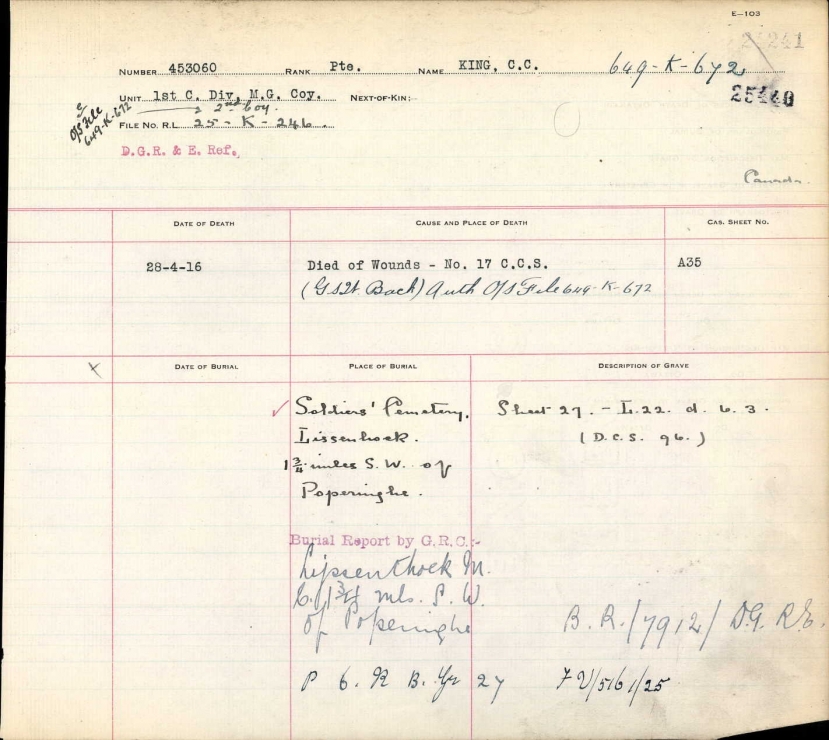 E—103
24241
NUMBER 453060 RANK Pte. NAME KING, C.C. 649-K-672
25440
UNIT 1st C. Div. M.G. Coy. NEXT-OF-KIN:
2nd Coy.
O/S File
649-K-672
FILE NO. R.L. 25-K-246.
D.G.R. & E. Ref.
Canada.
DATE OF DEATH CAUSE AND PLACE OF DEATH CAS. SHEET NO.
28-4-16 Died of Wounds - No. 17 C.C.S. A35
(G.S.W. Back) Auth O/S File 649-K-672
DATE OF BURIAL PLACE OF BURIAL DESCRIPTION OF GRAVE
Soldiers' Cemetery, Sheet 27. - L.22. d. 6. 3.
Lissenhock. (D.C.S. 96.)
1 3/4 miles S.W. of
Poperinghe.
Burial Report by G.R.C.:-
Lijssenthoek M.
C. 1 3/4 mls. S.W.
of Poperinghe B.R./7912/D.G.R.E.
P 6. R B. Gr 27